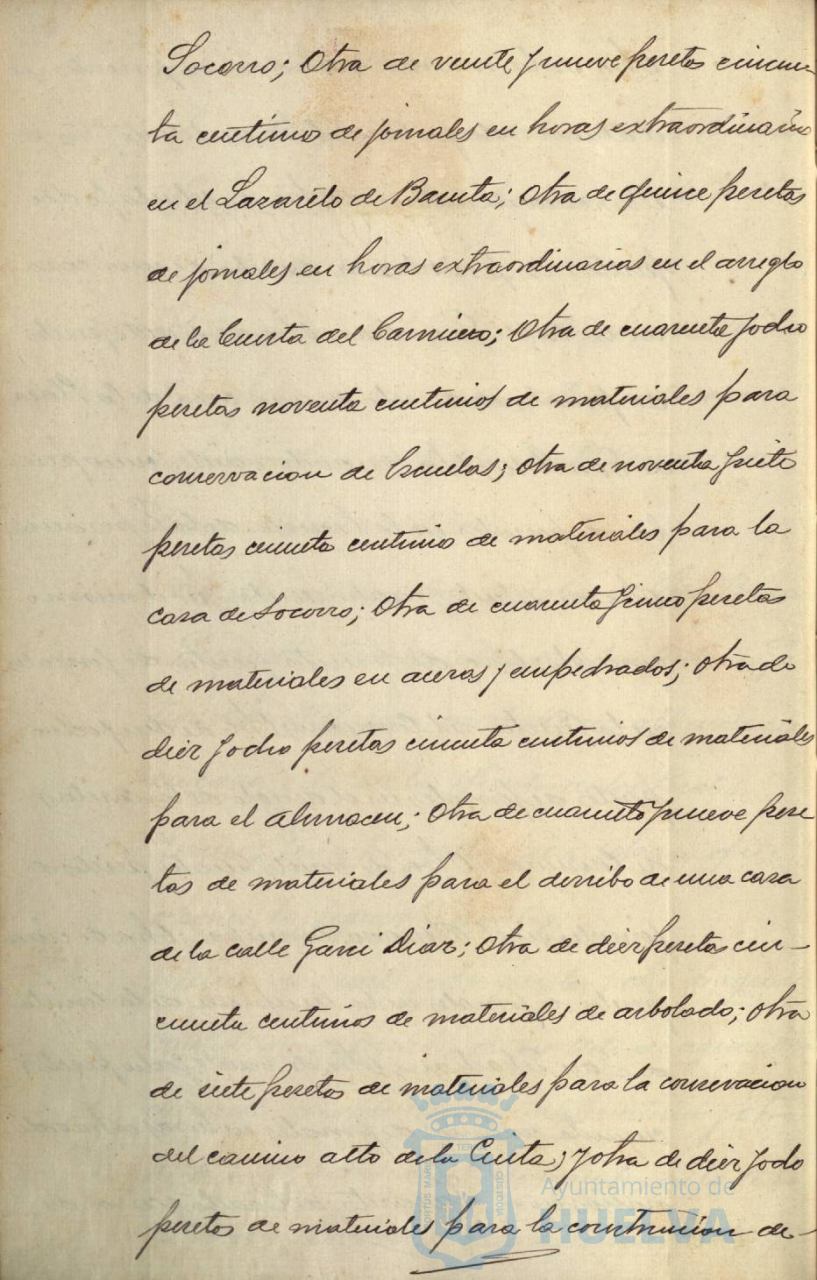 Socorro; Otra de veinte y nueve pesetas cincuen
ta centimos de jornales en horas extraordinarias
en el Lazareto de Bacuta; Otra de quince pesetas
de jornales en horas extraordinarias en el arreglo
de la Cuesta del Carnicero; Otra de cuarenta y ocho
pesetas noventa centimos de materiales para
conservacion de Escuelas; Otra de noventa y siete
pesetas cincuenta centimos de materiales para la
casa de Socorro; Otra de cuarenta y cinco pesetas
de materiales en aceras y empedrados; Otra de
diez y ocho pesetas cincuenta centimos de materiales
para el Almacen; Otra de cuarenta y nueve pese
tas de materiales para el derribo de una casa
de la calle Garci Diaz; Otra de diez pesetas cin-
cuenta centimos de materiales de arbolado; Otra
de siete pesetas de materiales para la conservacion
del camino alto de la Cinta; y otra de diez y ocho
pesetas de materiales para la construccion de-
Ayuntamiento de
HUELVA